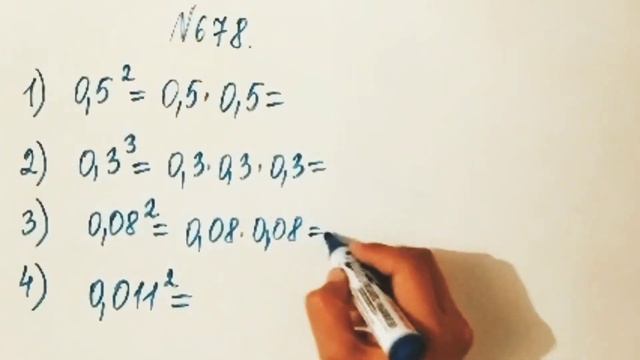 №678.
1) 0,5²= 0,5·0,5=
2) 0,3³= 0,3·0,3·0,3=
3) 0,08²= 0,08·0,08=
4) 0,011²=